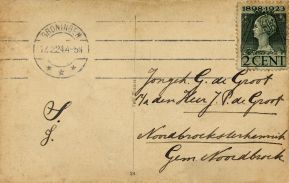 GRONINGEN
1898-1923
2 CENT
Jongeh. G. de Groot
a/d den Heer J. P. de Groot
Noordbroeksterhamrik
Gem. Noordbroek
S.
8.